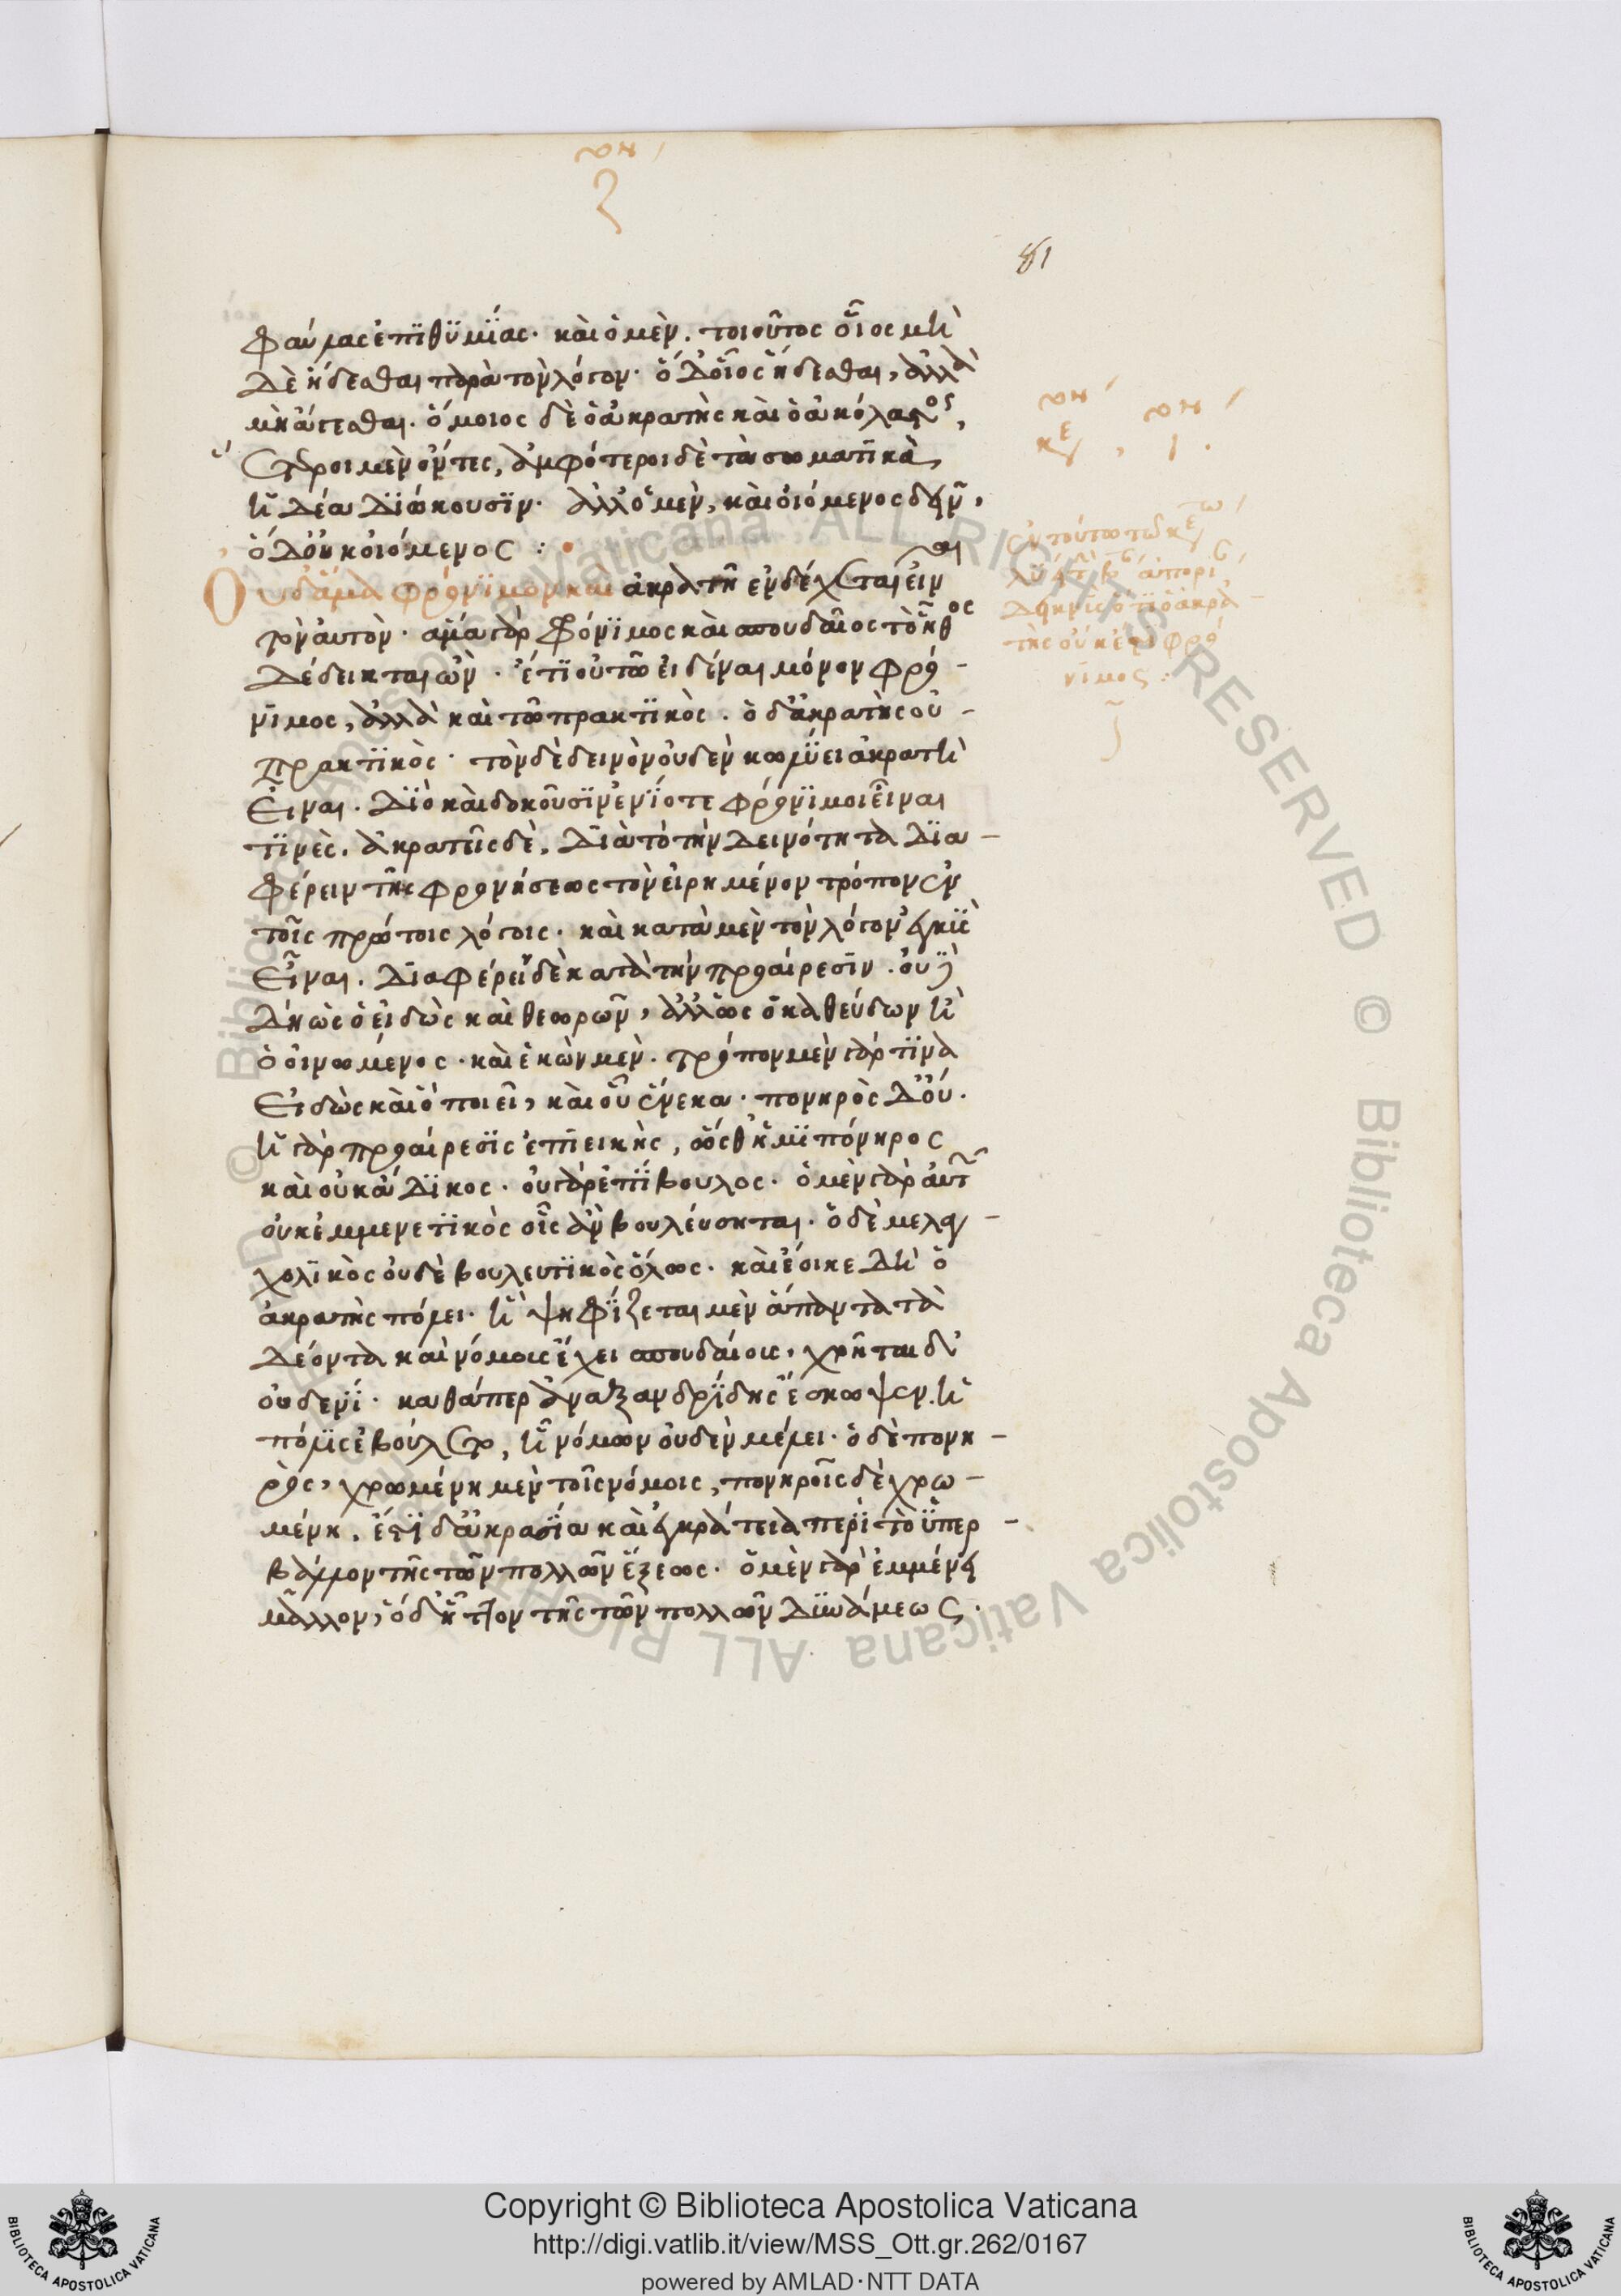 81
φαύλας ἐπϊθϋμΐας· καὶ ὁ μὲν. τοιοῦτος οἷος μὴ
δὲ ἥδεσθαι παρὰ τὸν λόγον· ὁ δ' οἷος ἥδεσθαι, ἀλλὰ
μὴ ἄγεσθαι. ὅμοιος δὲ ὁ ἀκρατὴς καὶ ὁ ἀκόλαστος,
ἕτεροι μὲν ὄντες, ἀμφότεροι δὲ τὰ σωματϊκὰ
ἡδέα διώκουσϊν· ἀλλ' ὁ μὲν, καὶ οἰόμενος δεῖν,
ὁ δ' οὐκ οἰόμενος :
Οὐδ' ἅμα φρόνϊμον καὶ ἀκρατῆ ἐνδέχεται εἶναι
τὸν αὐτὸν· ἅμα γὰρ φρόνϊμος καὶ σπουδαῖος τὸ ἦθος
δέδεικται ὢν· ἔτϊ οὐ τῷ εἰδέναι μόνον φρό-
νϊμος, ἀλλὰ καὶ τῷ πρακτϊκὸς. ὁ δ' ἀκρατὴς οὐ-
πρακτϊκὸς· τὸν δὲ δεινὸν οὐδὲν κωλύει ἀκρατῆ
εἶναι. δϊὸ καὶ δοκοῦσϊν ἐνΐοτε φρόνϊμοι εἶναι
τϊνὲς. ἀκρατεῖς δὲ, δϊὰ τὸ τὴν δεινότητα δϊα-
φέρειν τῆς φρονήσεως τὸν εἰρημένον τρόπον ἐν
τοῖς πρώτοις λόγοις. καὶ κατὰ μὲν τὸν λόγον ἐγγὺς
εἶναι. δϊαφέρειν δὲ κατὰ τὴν προαίρεσϊν. οὐ
δὴ ὡς ὁ εἰδὼς καὶ θεωρῶν, ἀλλ' ὡς ὁ καθεύδων ἢ
ὁ οἰνωμένος. καὶ ἑκὼν μὲν. τρόπον μὲν γάρ τϊνα
εἰδὼς καὶ ὃ ποιεῖ, καὶ οὗ ἕνεκα. πονηρὸς δ' οὔ.
ἡ γὰρ προαίρεσϊς ἐπϊεικὴς, ὥσθ' ἡμϊπόνηρος
καὶ οὐκ ἄδϊκος. οὐ γὰρ ἐπΐβουλος. ὁ μὲν γὰρ αὐτῶν
οὐκ ἐμμενετϊκὸς οἷς ἂν βουλεύσηται. ὁ δὲ μελαγ-
χολϊκὸς οὐδὲ βουλευτϊκὸς ὅλως. καὶ ἔοικε δὴ ὁ
ἀκρατὴς πόλει. ἣ ψηφΐζεται μὲν ἅπαντα τὰ
δέοντα καὶ νόμους ἔχει σπουδαίους, χρῆται δ'
οὐδενΐ. καθάπερ ἀναξανδρΐδης ἔσκωψεν. ἡ
πόλις ἐβούλετο, ᾗ νόμων οὐδὲν μέλει. ὁ δὲ πονη-
ρὸς, χρωμένη μὲν τοῖς νόμοις, πονηροῖς δὲ χρω-
μένη. ἔστϊ δ' ἀκρασΐα καὶ ἐγκράτεια περὶ τὸ ὑπερ-
βάλλον τῆς τῶν πολλῶν ἕξεως. ὁ μὲν γὰρ ἐμμένει
μᾶλλον, ὁ δ' ἧττον τῆς τῶν πολλῶν δϋνάμεως.
ἐν τούτω τῶ
λύει τὴν ἀπορί
δεικνὺς ὅτϊ ὁ ἀκρα-
τὴς οὐκ ἔστι φρό
νϊμος :
Copyright © Biblioteca Apostolica Vaticana
http://digi.vatlib.it/view/MSS_Ott.gr.262/0167
powered by AMLAD·NTT DATA
BIBLIOTECA APOSTOLICA VATICANA
BIBLIOTECA APOSTOLICA VATICANA